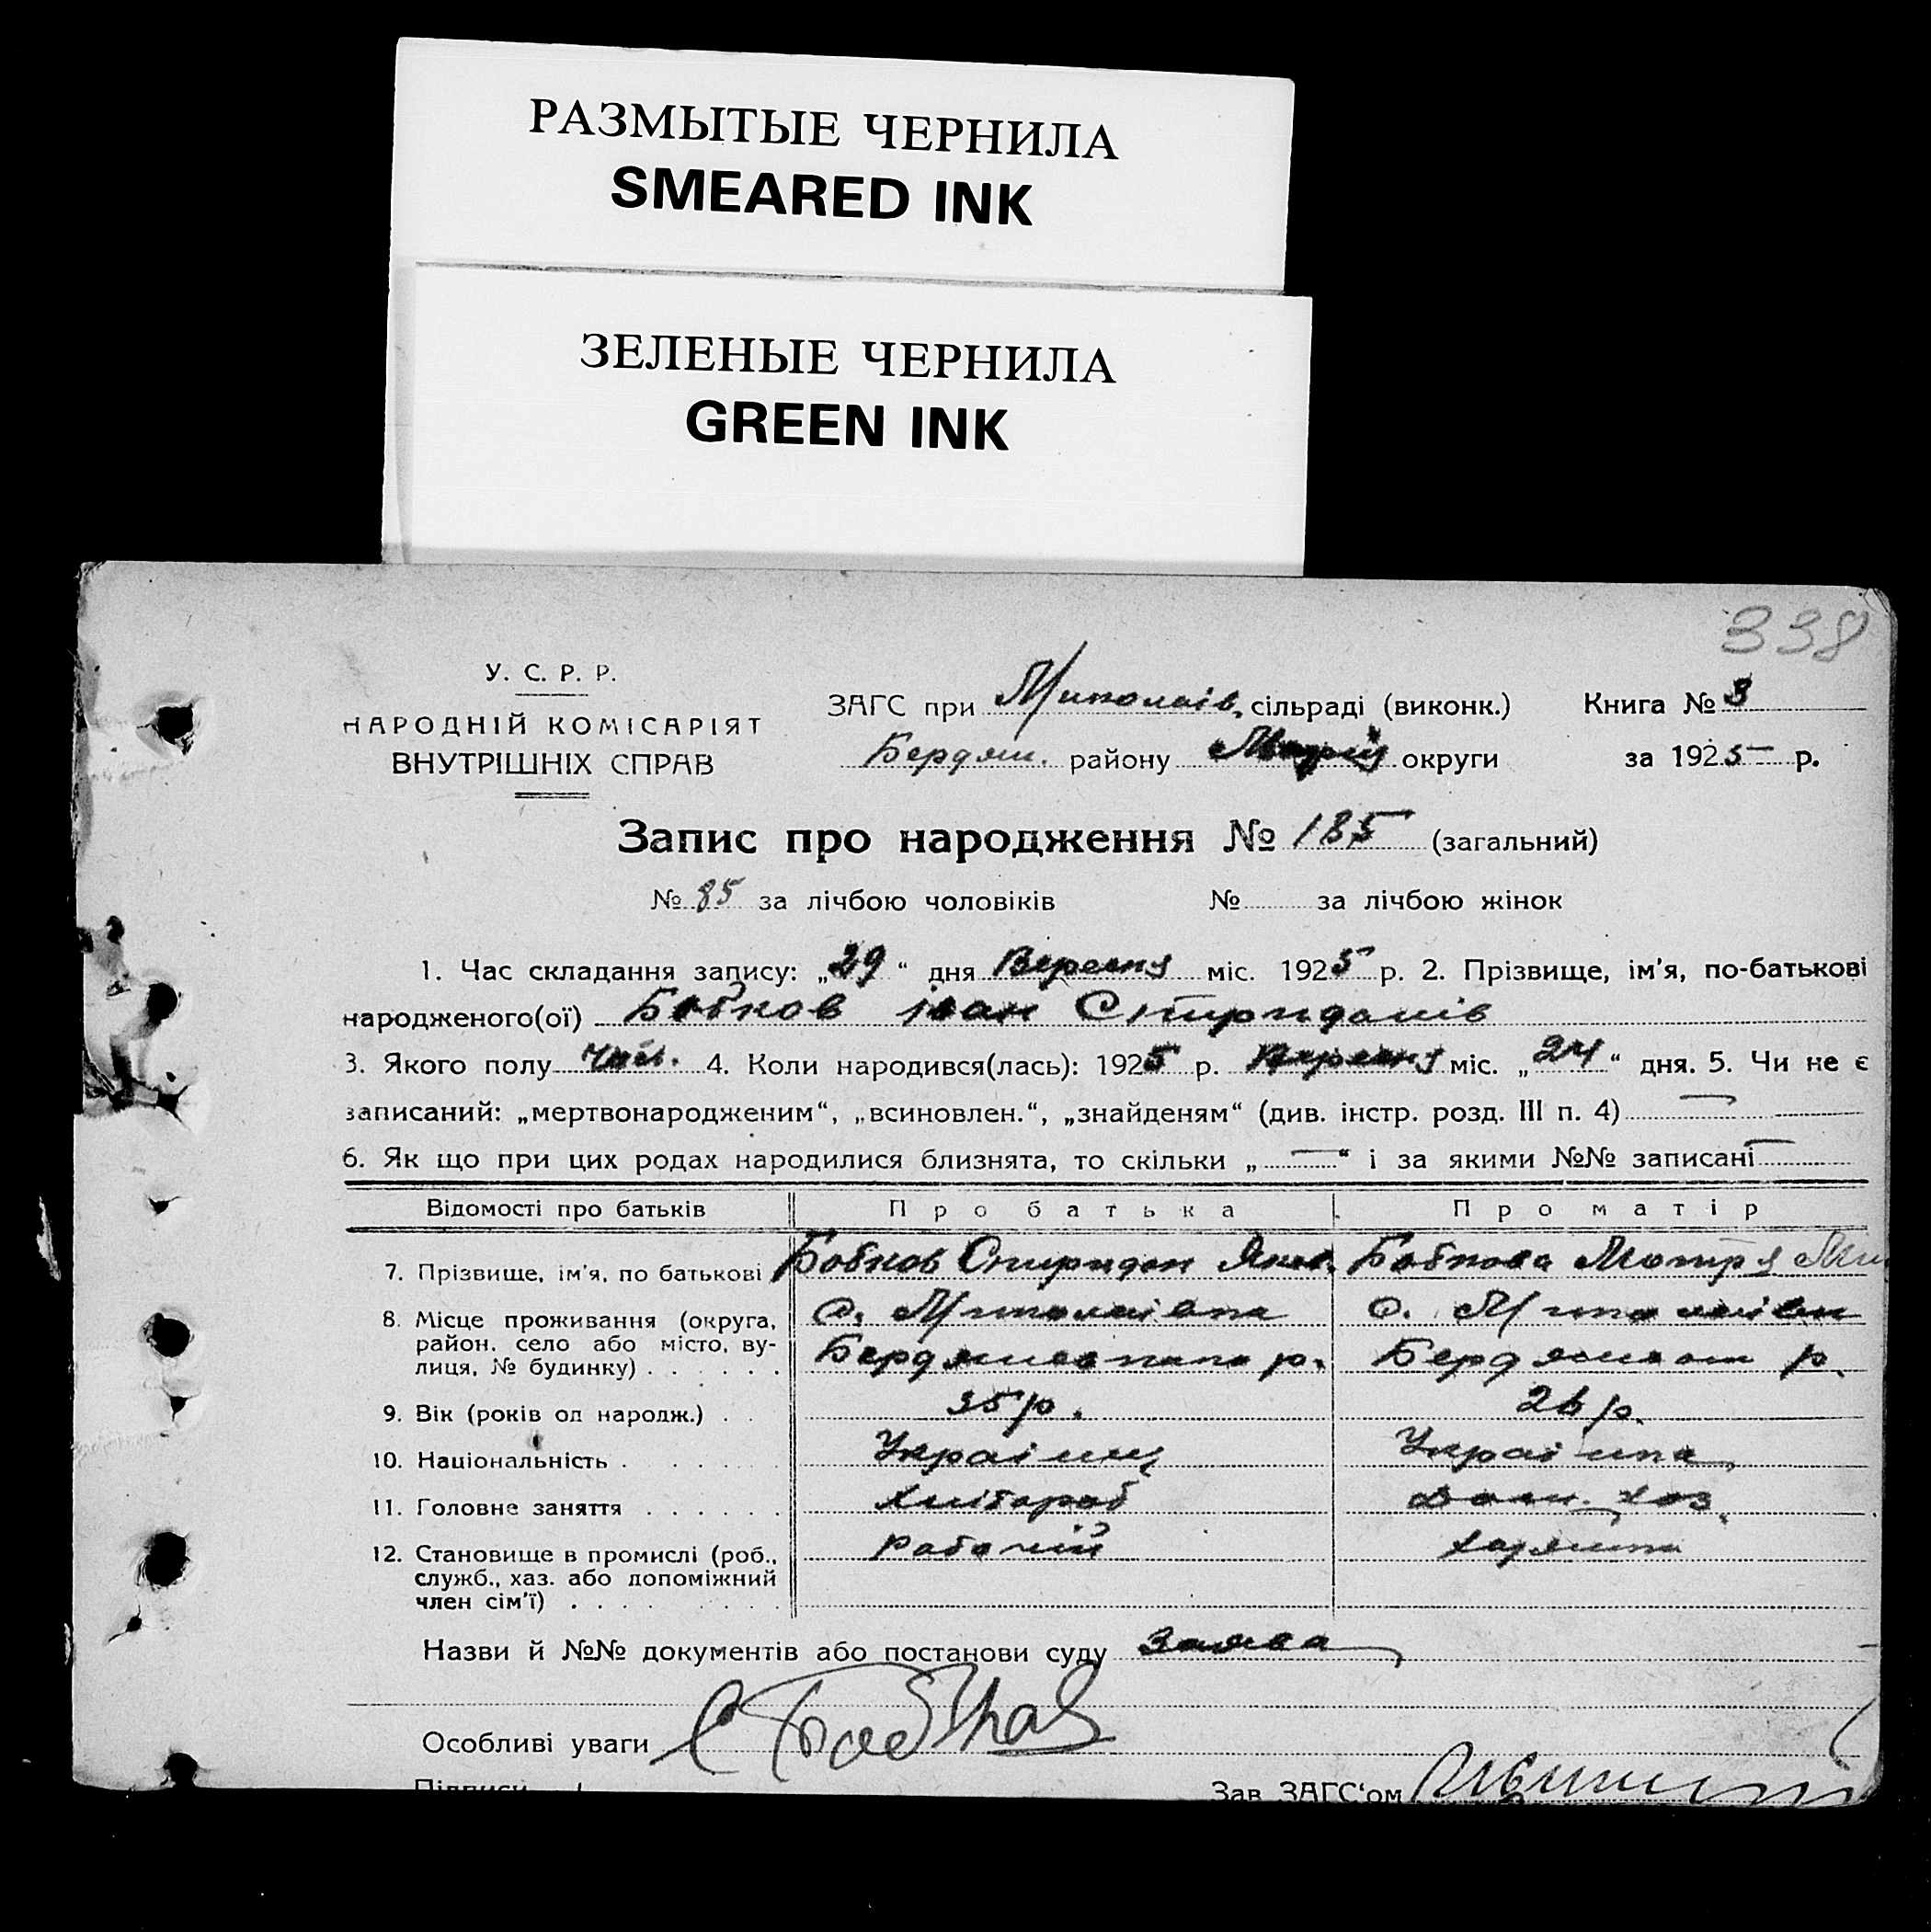 РАЗМЫТЫЕ ЧЕРНИЛА
SMEARED INK
ЗЕЛЕНЫЕ ЧЕРНИЛА
GREEN INK
338
У. С. Р. Р.
НАРОДНІЙ КОМІСАРІЯТ
ВНУТРІШНІХ СПРАВ
ЗАГС при Миколаів. сільраді (виконк.)
Бердян. району округи
Книга № 3
за 1925 р.
Запис про народження № 185 (загальний)
№ 85 за лічбою чоловіків № за лічбою жінок
1. Час складання запису: „29“ дня Вересня міс. 1925 р. 2. Прізвище, ім'я, по-батькові
народженого(ої) Бобков іван Спиридонів
3. Якого полу Чол. 4. Коли народився(лась): 1925 р. Вересня міс. „24“ дня. 5. Чи не є
записаний: „мертвонародженим“, „всиновлен.“, „знайденям“ (див. інстр. розд. III п. 4) —
6. Як що при цих родах народилися близнята, то скільки „—“ і за якими №№ записані —
Відомості про батьків Про батька Про матір
7. Прізвище, ім'я, по батькові Бобков Спиридон Яков. Бобкова Мотря Ми
8. Місце проживання (округа, район, село або місто, вулиця, № будинку) с. Миколаівка с. Миколаівки
Бердянського р. Бердянськ р.
9. Вік (років од народж.) 35 р. 26 р.
10. Національність Украінец Украінка
11. Головне заняття хлібороб Дом. хоз.
12. Становище в промислі (роб., служб., хаз. або допоміжний член сім'ї) рабочій хазяйка
Назви й №№ документів або постанови суду Заява
Особливі уваги С Бобков
Підписи
Зав. ЗАГС'ом